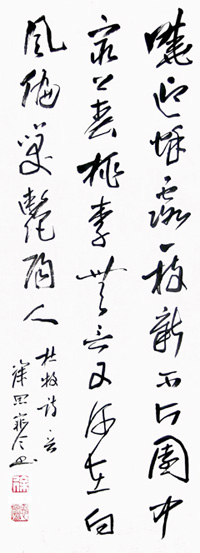 曉迎秋露一枝新不占園中
最上春桃李無言又何在向
風偏笑艷陽人
杜牧詩